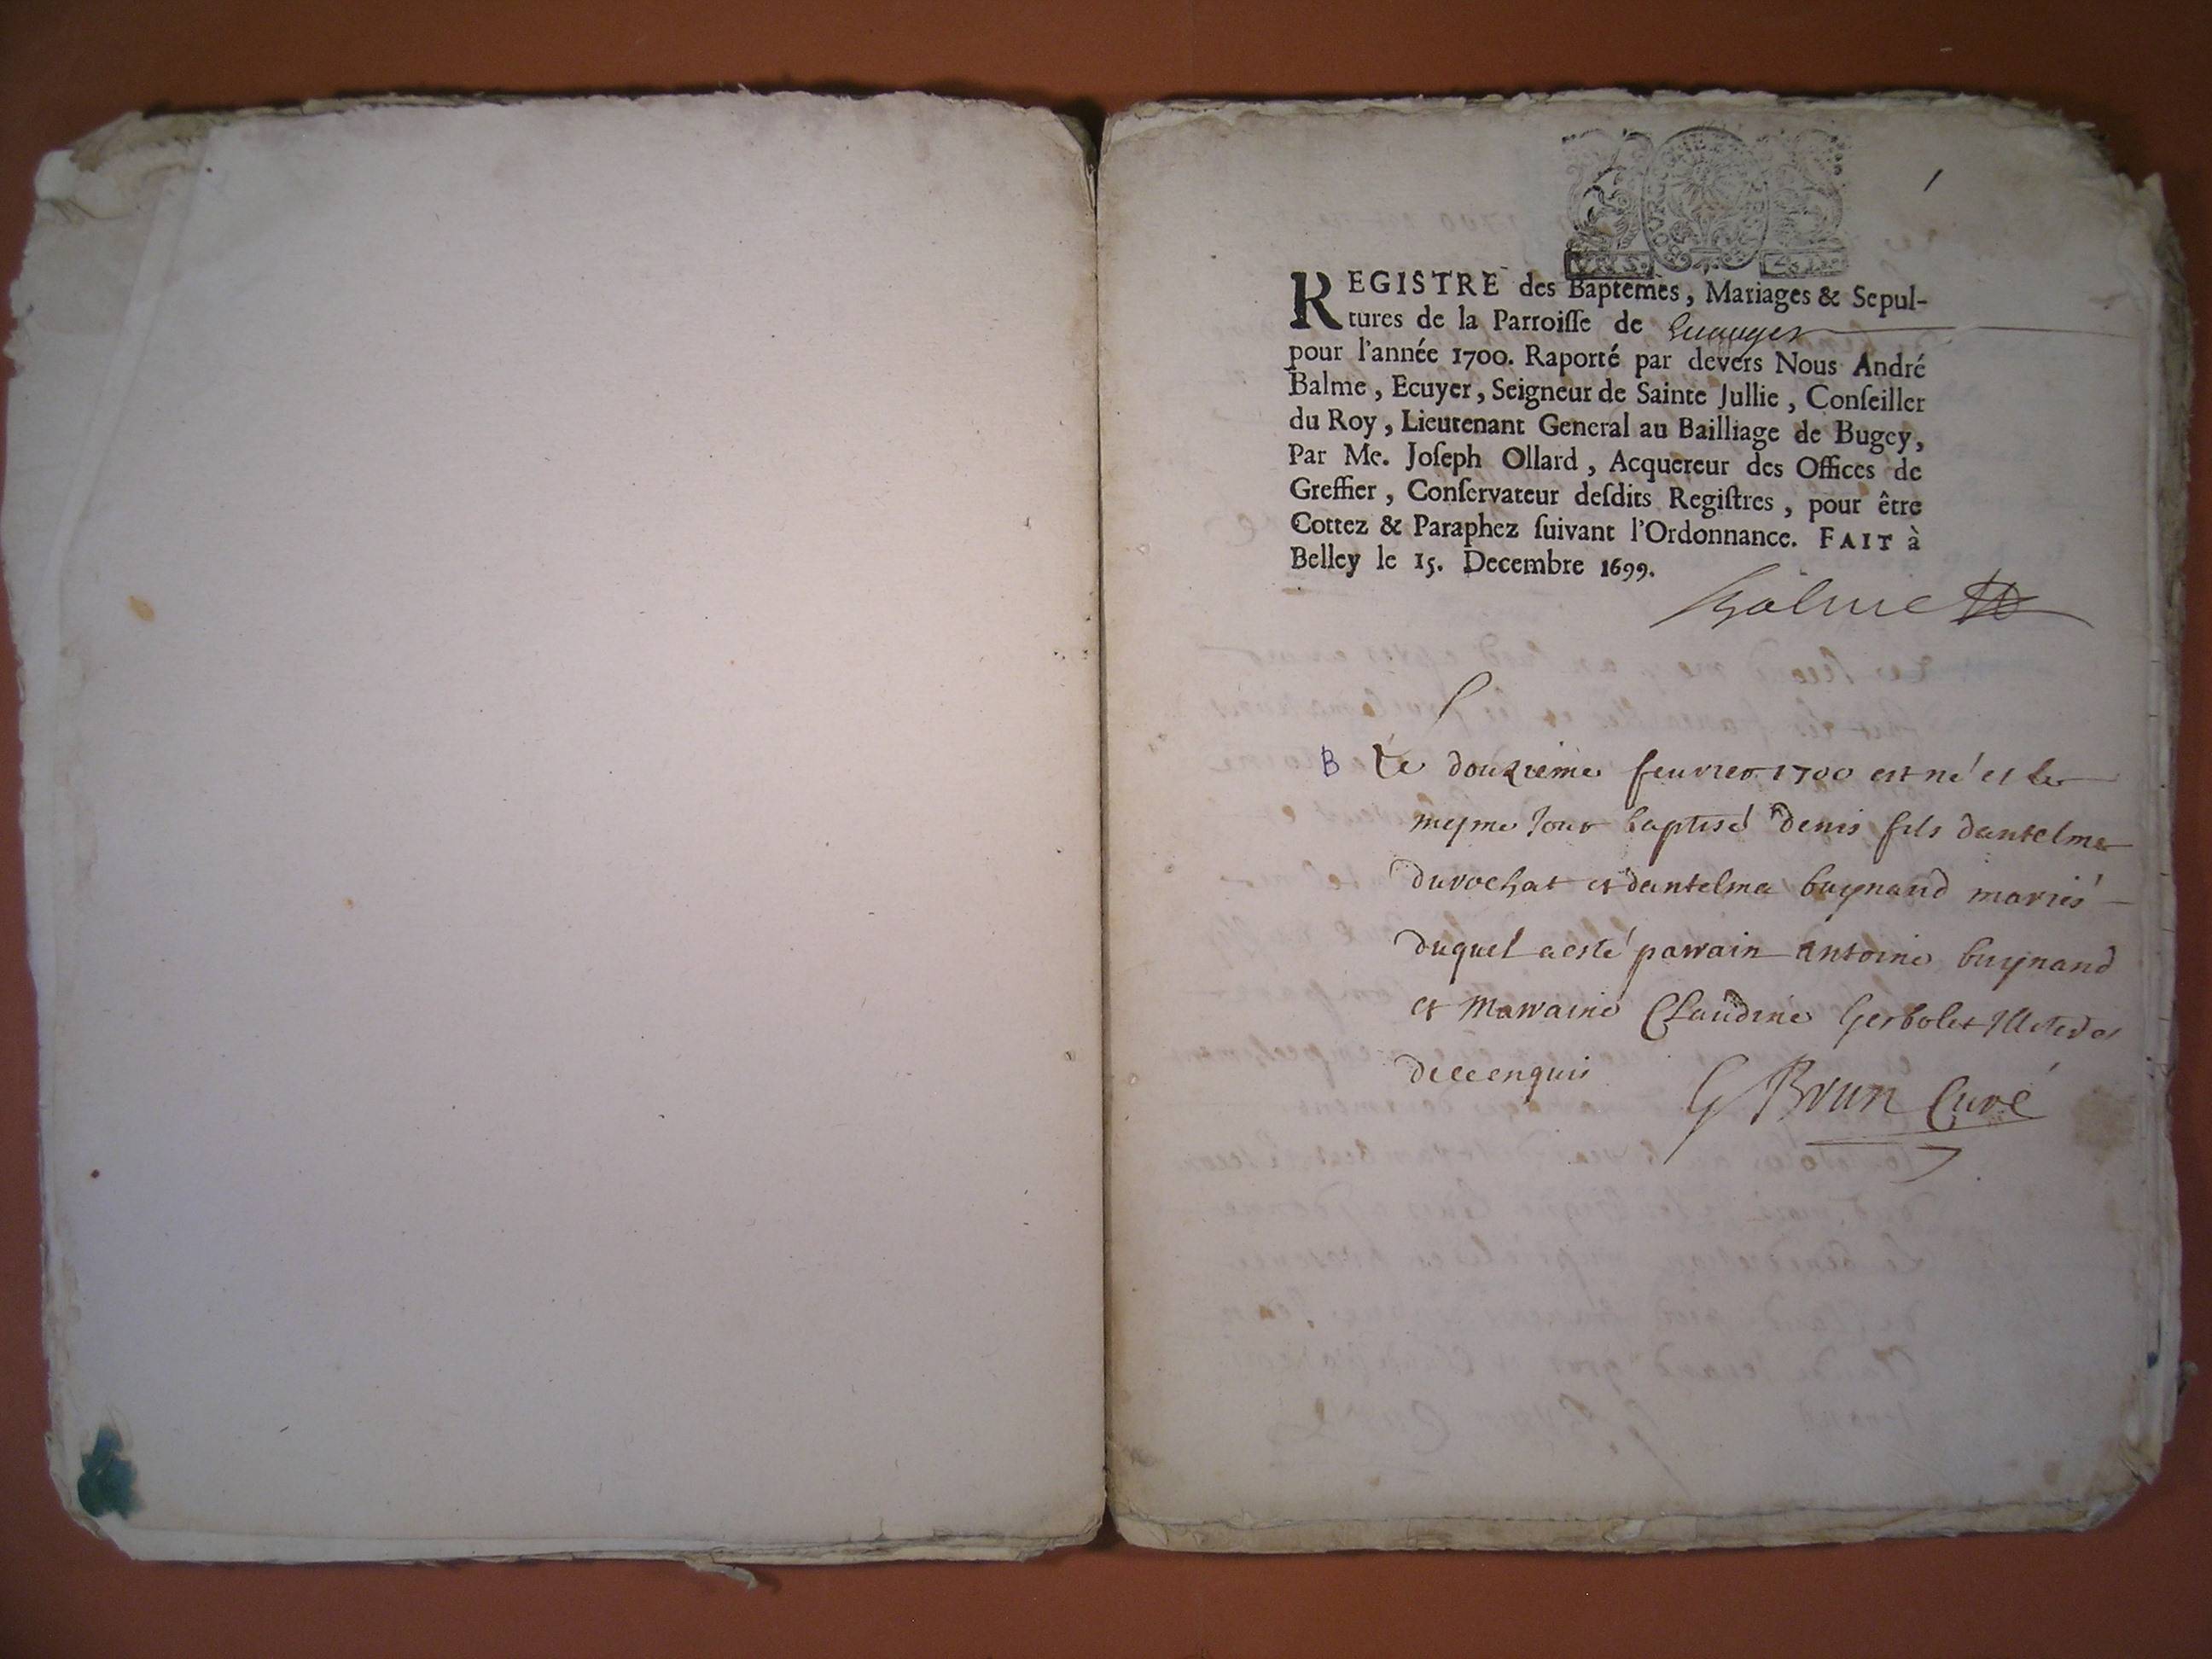 1
BOURGOGNE
REGISTRE des Baptemes, Mariages & Sepul-
tures de la Parroisse de
pour l'année 1700. Raporté par devers Nous André
Balme, Ecuyer, Seigneur de Sainte Jullie, Conseiller
du Roy, Lieutenant General au Bailliage de Bugey,
Par Me. Joseph Ollard, Acquereur des Offices de
Greffier, Conservateur desdits Registres, pour être
Cottez & Paraphez suivant l'Ordonnance. FAIT à
Belley le 15. Decembre 1699.
Balme
B Le douzieme feurier 1700 est né et le
mesme Jour baptisé denis fils dantelme
durochat et dantelma buynand mariés
duquel a esté parrain antoine buynand
et Marraine Claudine Gerbolet Illiteres
de ce enquis
G Brun Curé